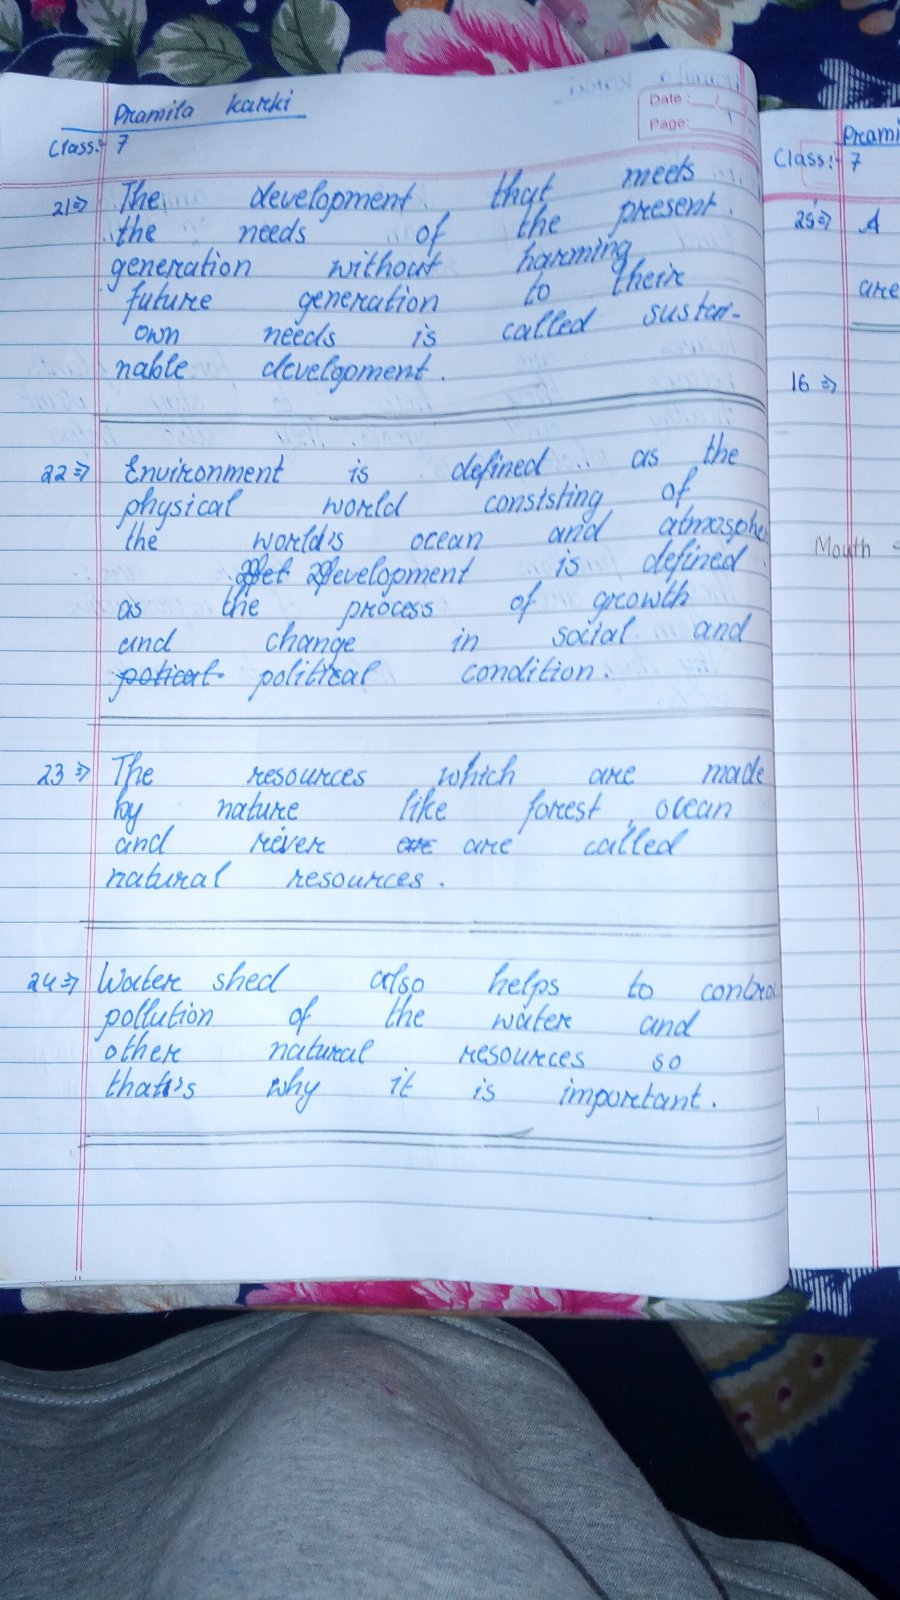 Pramila Karki
Date:
Page:
Class:- 7
21⇒ The development that meets
the needs of the present
generation without harming
future generation to their
own needs is called sustai-
nable development.
22⇒ Environment is defined as the
physical world consisting of
the world's ocean and atmosphe
Development is defined
as the process of growth
and change in social and
potical political condition.
23⇒ The resources which are made
by nature like forest, ocean
and river are are called
natural resources.
24⇒ Water shed also helps to control
pollution of the water and
other natural resources so
that's why it is important.
Prami
Class:- 7
25⇒ A
are
16⇒
Mouth